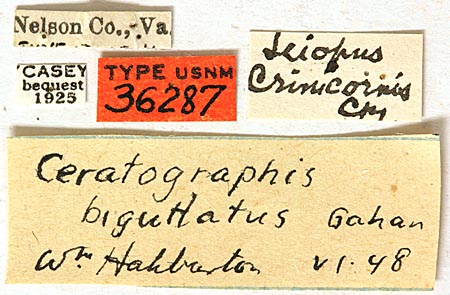 Nelson Co., Va.
CASEY
bequest
1925
TYPE USNM
36287
Leiopus
Crinicornis
Csy
Ceratographis
biguttatus Gahan
Wm Haliburton VI-48